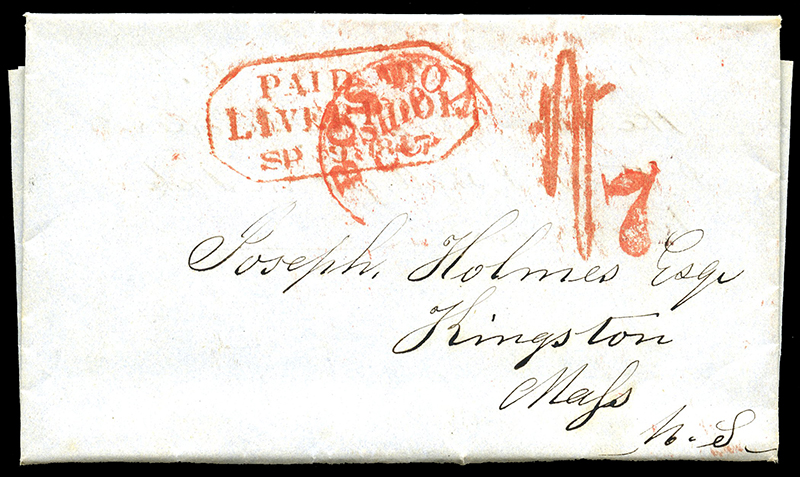 PAID
LIVERPOOL
BOS
SHIP
7
Joseph. Holmes Esqr
Kingston
Mass
U.S.